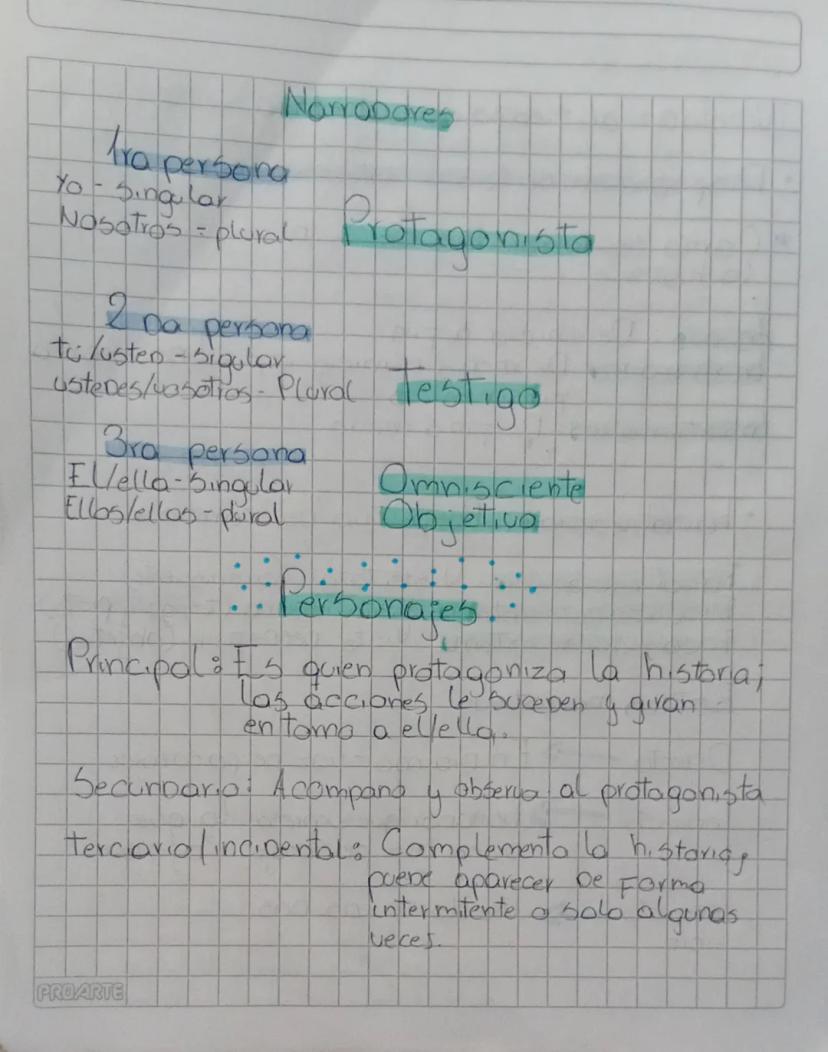 Narradores
1ra persona
Yo - singular
Nosotros = plural
Protagonista
2 da persona
tú/usted - sigular
ustedes/vosotros - Plural
Testigo
3ra persona
El/ella - Singular
Ellos/ellas - plural
Omnisciente
Objetivo
Personajes.
Principal: Es quien protagoniza la historia;
las acciones le suceden y giran
en torno a el/ella.
Secundario: Acompaña y observa al protagonista
terciario/incidental: Complementa la historia,
puede aparecer De Forma
intermitente o solo algunas
veces.
PROARTE